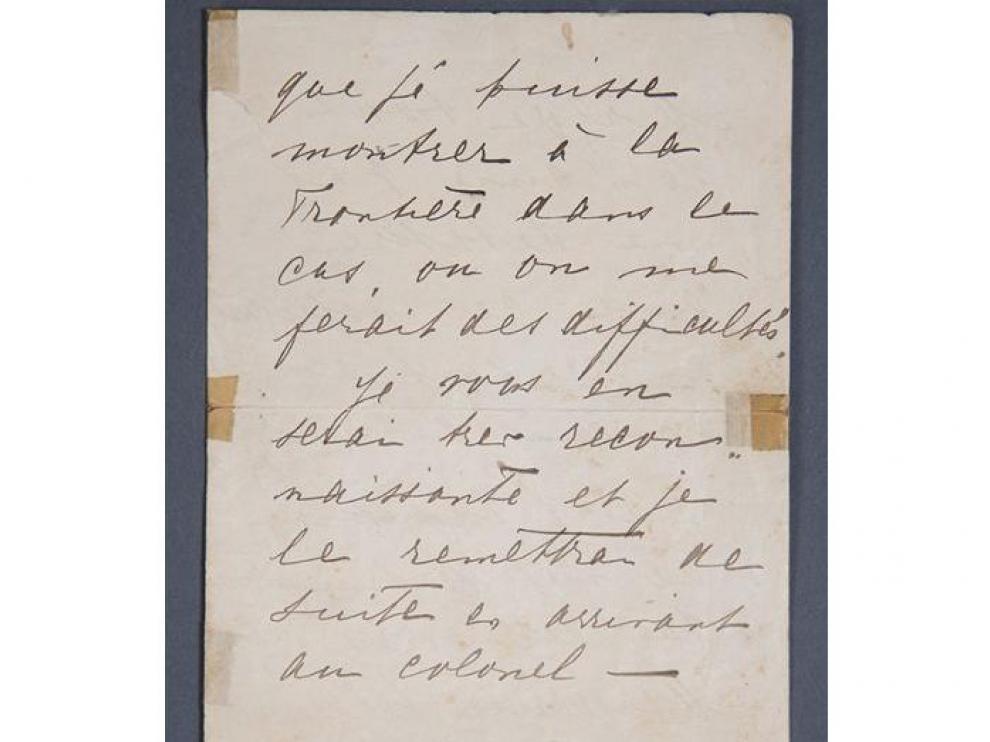 que je puisse
montrer à la
Frontière dans le
cas, ou on me
ferait des difficultés.
Je vous en
serai tres recon„
naissante et je
le remettrai de
suite en arrivant
au colonel —